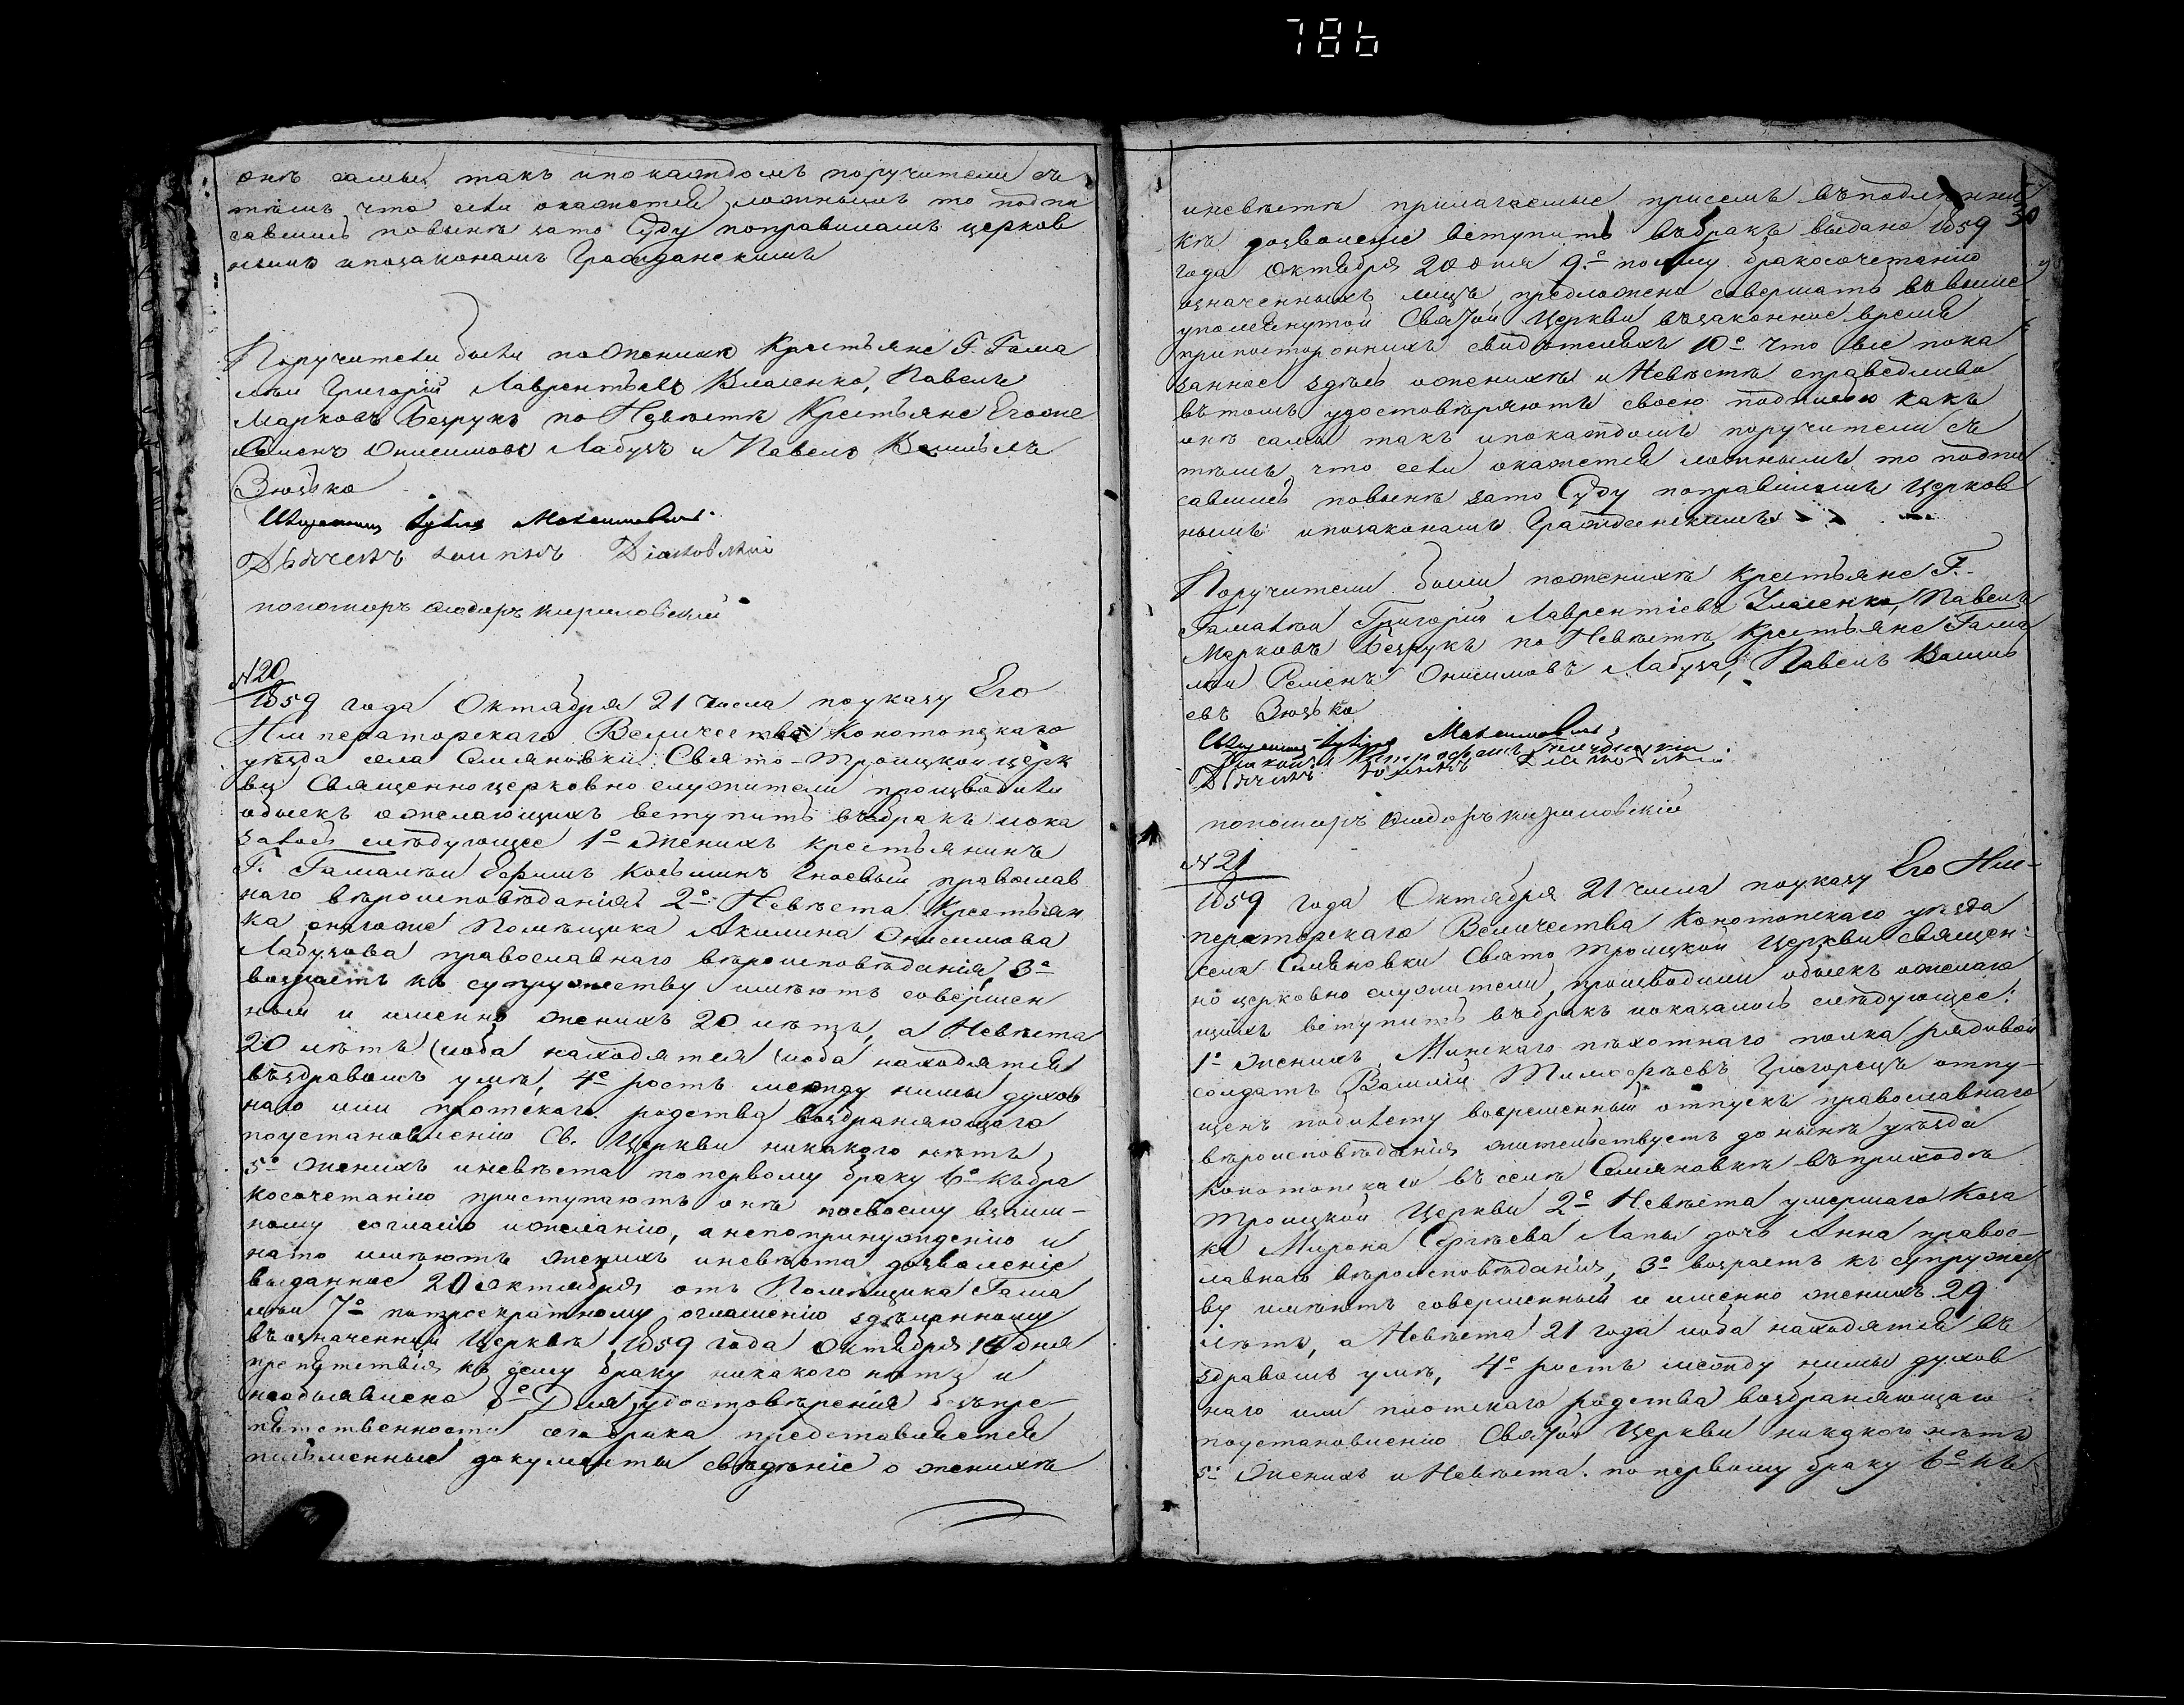 786
онѣ самы, такъ ипокаждомъ поручители съ
тѣмъ что если окажется ложнымъ то подпи
савшись повынѣ зато Суду поправиламъ церков
нымъ ипозаконамъ Гражданскимъ
Поручители были поЖениху Крестьяне Г. Гама
лѣи Григорій Лаврентьевъ Павелъ
Марковъ Безрукъ по Невѣстѣ Крестьяне Егоже
Семенъ Онисимовъ Лабузъ и Павелъ Васильевъ
Зюзько
Максимовичь
Дьячекъ
пономарь Ѳедоръ Кириловский
N 20
1859 года Октября 21 числа поуказу Его
Императорскаго Величества Конотопскаго
уѣзда села Семяновки Свято-Троицкой церк
ви Священноцерковно служители производили
обыскъ ожелающихъ вступить въбракъ пока
залось слѣдующее 1е Женихъ крестьянинъ
Г. Гамалѣи Ефимъ Косьминъ Гноевый православ
наго вѣроисповѣданія 2е Невѣста Крестьян
ка онагоже Помѣщика Акилина Онисимова
Лабузова православнаго вѣроисповѣданія, 3е
возрастъ къ супружеству имѣютъ совершен
ный и именно женихъ 20 лѣтъ, а Невѣста
20 лѣтъ иоба находятся иоба находятся
въздравомъ умѣ, 4е рость между ними духов
наго или плотскаго родства возбраняющаго
поустановленію Св. Церкви никакого нѣтъ
5е Женихъ иневѣста попервому браку 6е къбра
косочетанію приступаютъ онѣ посвоему взаим-
ному согласію ижеланію, а непопринужденію и
нато имѣютъ женихъ иневѣста дозволеніе
выданное 20 октября отъ Помѣщика Гама
лѣи 7е потроекратному оглашенію здѣланному
възначенной Церквѣ 1859 года Октября 14 дня
препятствія къ сему браку никакого нѣтъ и
необъявлено 8е Для удостовѣренія безъпре-
пятственности сегобрака представляется
письменные документы свѣдѣніе о женихѣ
30
иневѣстѣ прилагаемые присемъ въподлинни
кѣ дозволеніе вступить въбракъ выдано 1859
года Октября 20 дня 9.е посему бракосочетанію
означенныхъ лицъ предложено совершать ввыше
упомянутой Святой Церкви възаконное время
припостороннихъ свидѣтеляхъ 10е что все пока
занное здѣсь оженихѣ и Невѣстѣ справедливо
вътомъ удостовѣряютъ своею подписью какъ
онѣ самы такъ ипокаждомъ поручители съ
тѣмъ, что если окажется ложнымъ то подпи
савшись повынѣ зато Суду поправиламъ Церков
нымъ ипозаконамъ Гражданскимъ
Поручители были поженихѣ крестьяне Г.
Гамалѣи Григорій Лаврентіевъ Павелъ
Марковъ Безрукъ по Невѣстѣ Крестьяне Гама
лѣи Семенъ Онисимовъ Лабуза, Павелъ Васил
евъ Зюзько
Максимовичь
Дьячекъ
пономарь Ѳедоръ Кириловскій
N 21
1859 года Октября 21 числа поуказу Его Им-
ператорскаго Величества Конотопскаго уѣзда
села Семяновки Свято Троицкой Церкви священ-
но церковно служители, производили обыскъ ожелаю
щихъ вступить въбракъ иоказалось слѣдующее:
1е Женихъ Минскаго пѣхотнаго полка рядовой
солдатъ Василій Тимофѣевъ Григорецъ отпу-
щенъ побилету вовременный отпускъ православнаго
вѣроисповѣданія жительствуетъ донынѣ уѣзда
Конотопскаго въ селѣ Семяновкѣ въприходѣ
Троицкой Церкви 2е Невѣста умершаго Коза
ка Мирона Сергѣева Лапы дочь Анна право-
славнаго вѣроисповѣданія, 3е возрастъ къ супружест
ву имѣютъ совершенный и именно женихъ 29
лѣтъ, а Невѣста 21 года иоба находятся въ
здравомъ умѣ, 4е рость между ними духов
наго или плотскаго родства возбраняющаго
поустановленію Святой Церкви никакого нѣтъ
5е Женихъ и Невѣста. попервому браку 6е къ